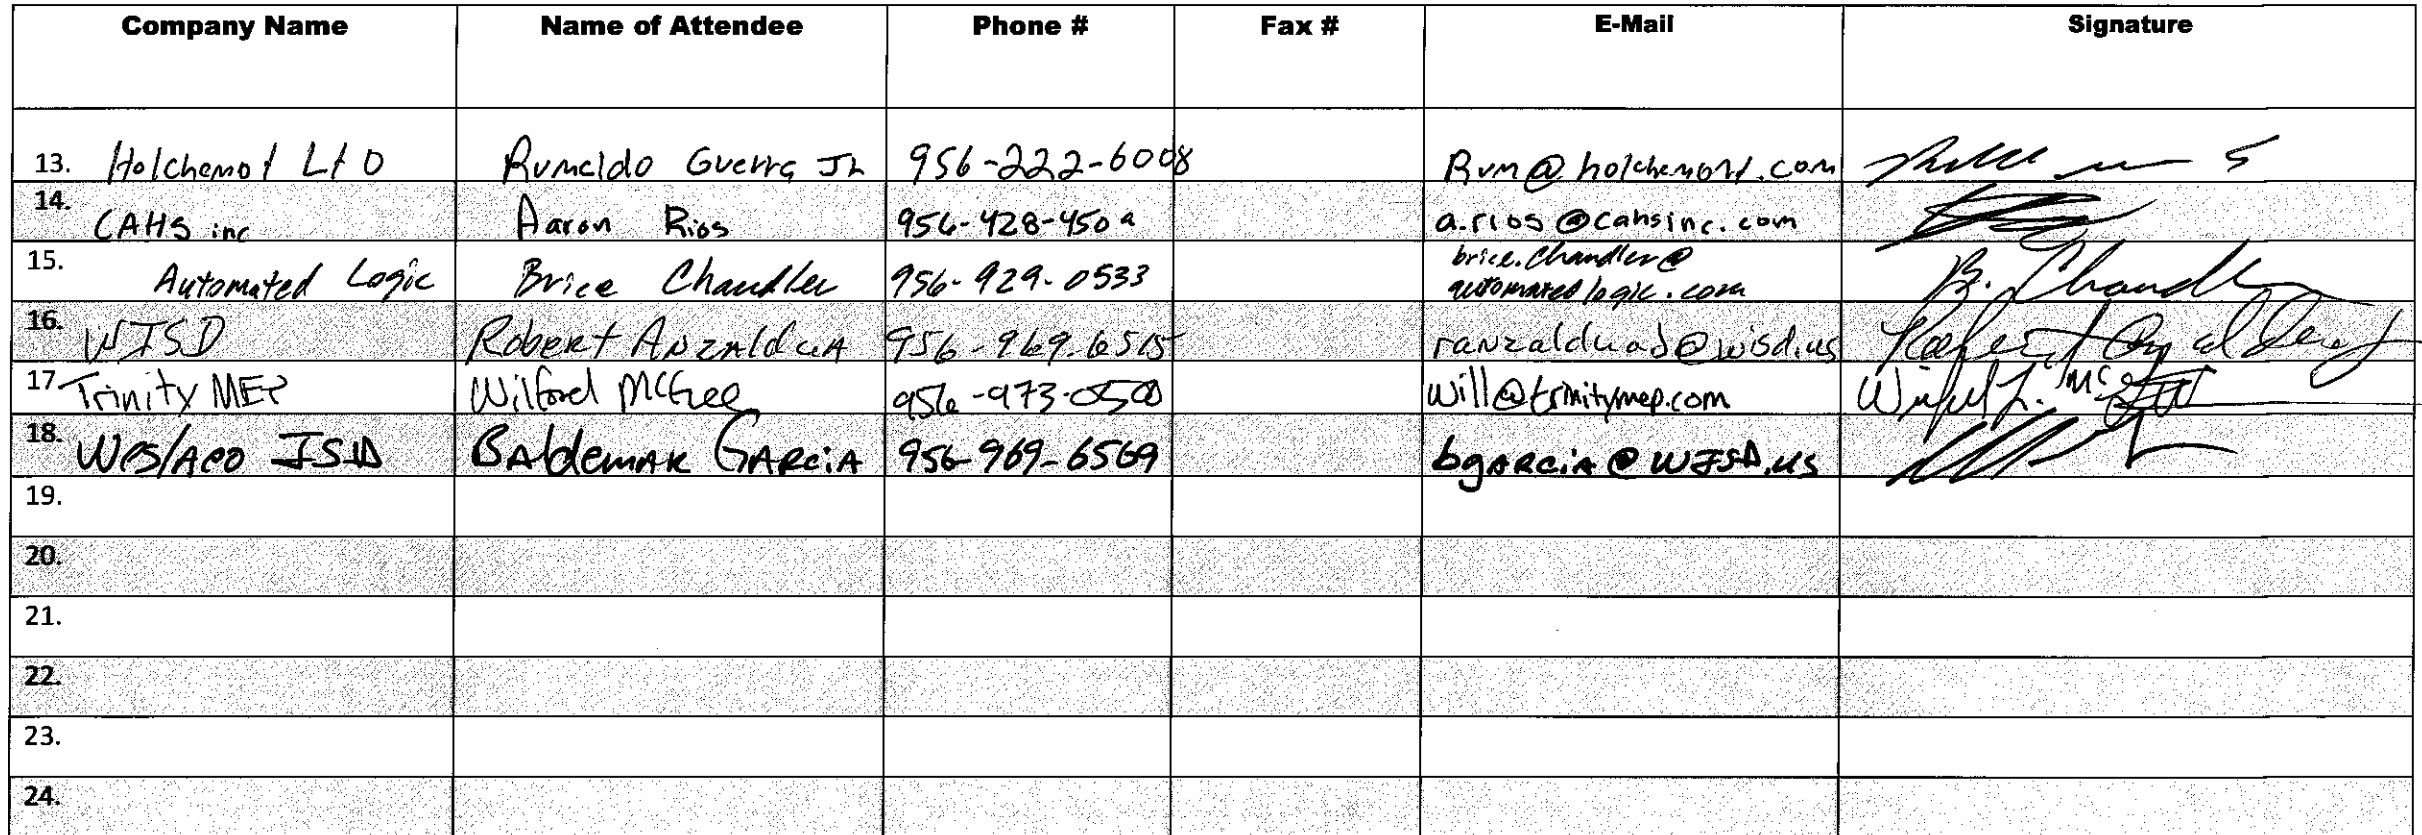 Company Name Name of Attendee Phone # Fax # E-Mail Signature
13. Holchemot Ltd Rumaldo Guerra Jr 956-222-6008 Rum@holchemont.com
14. CAHS inc Aaron Rios a.rios@cahsinc.com
15. Automated Logic Brice Chandler 956-929-0533 brice.Chandler@
automatedlogic.com B. Chandler
16. WISD Robert Anzaldua
17. Trinity MEP Wilford McGee will@trinitymep.com
18. Weslaco ISD Baldemar Garcia 956-969-6569 bgarcia@WISD.us
19.
20.
21.
22.
23.
24.